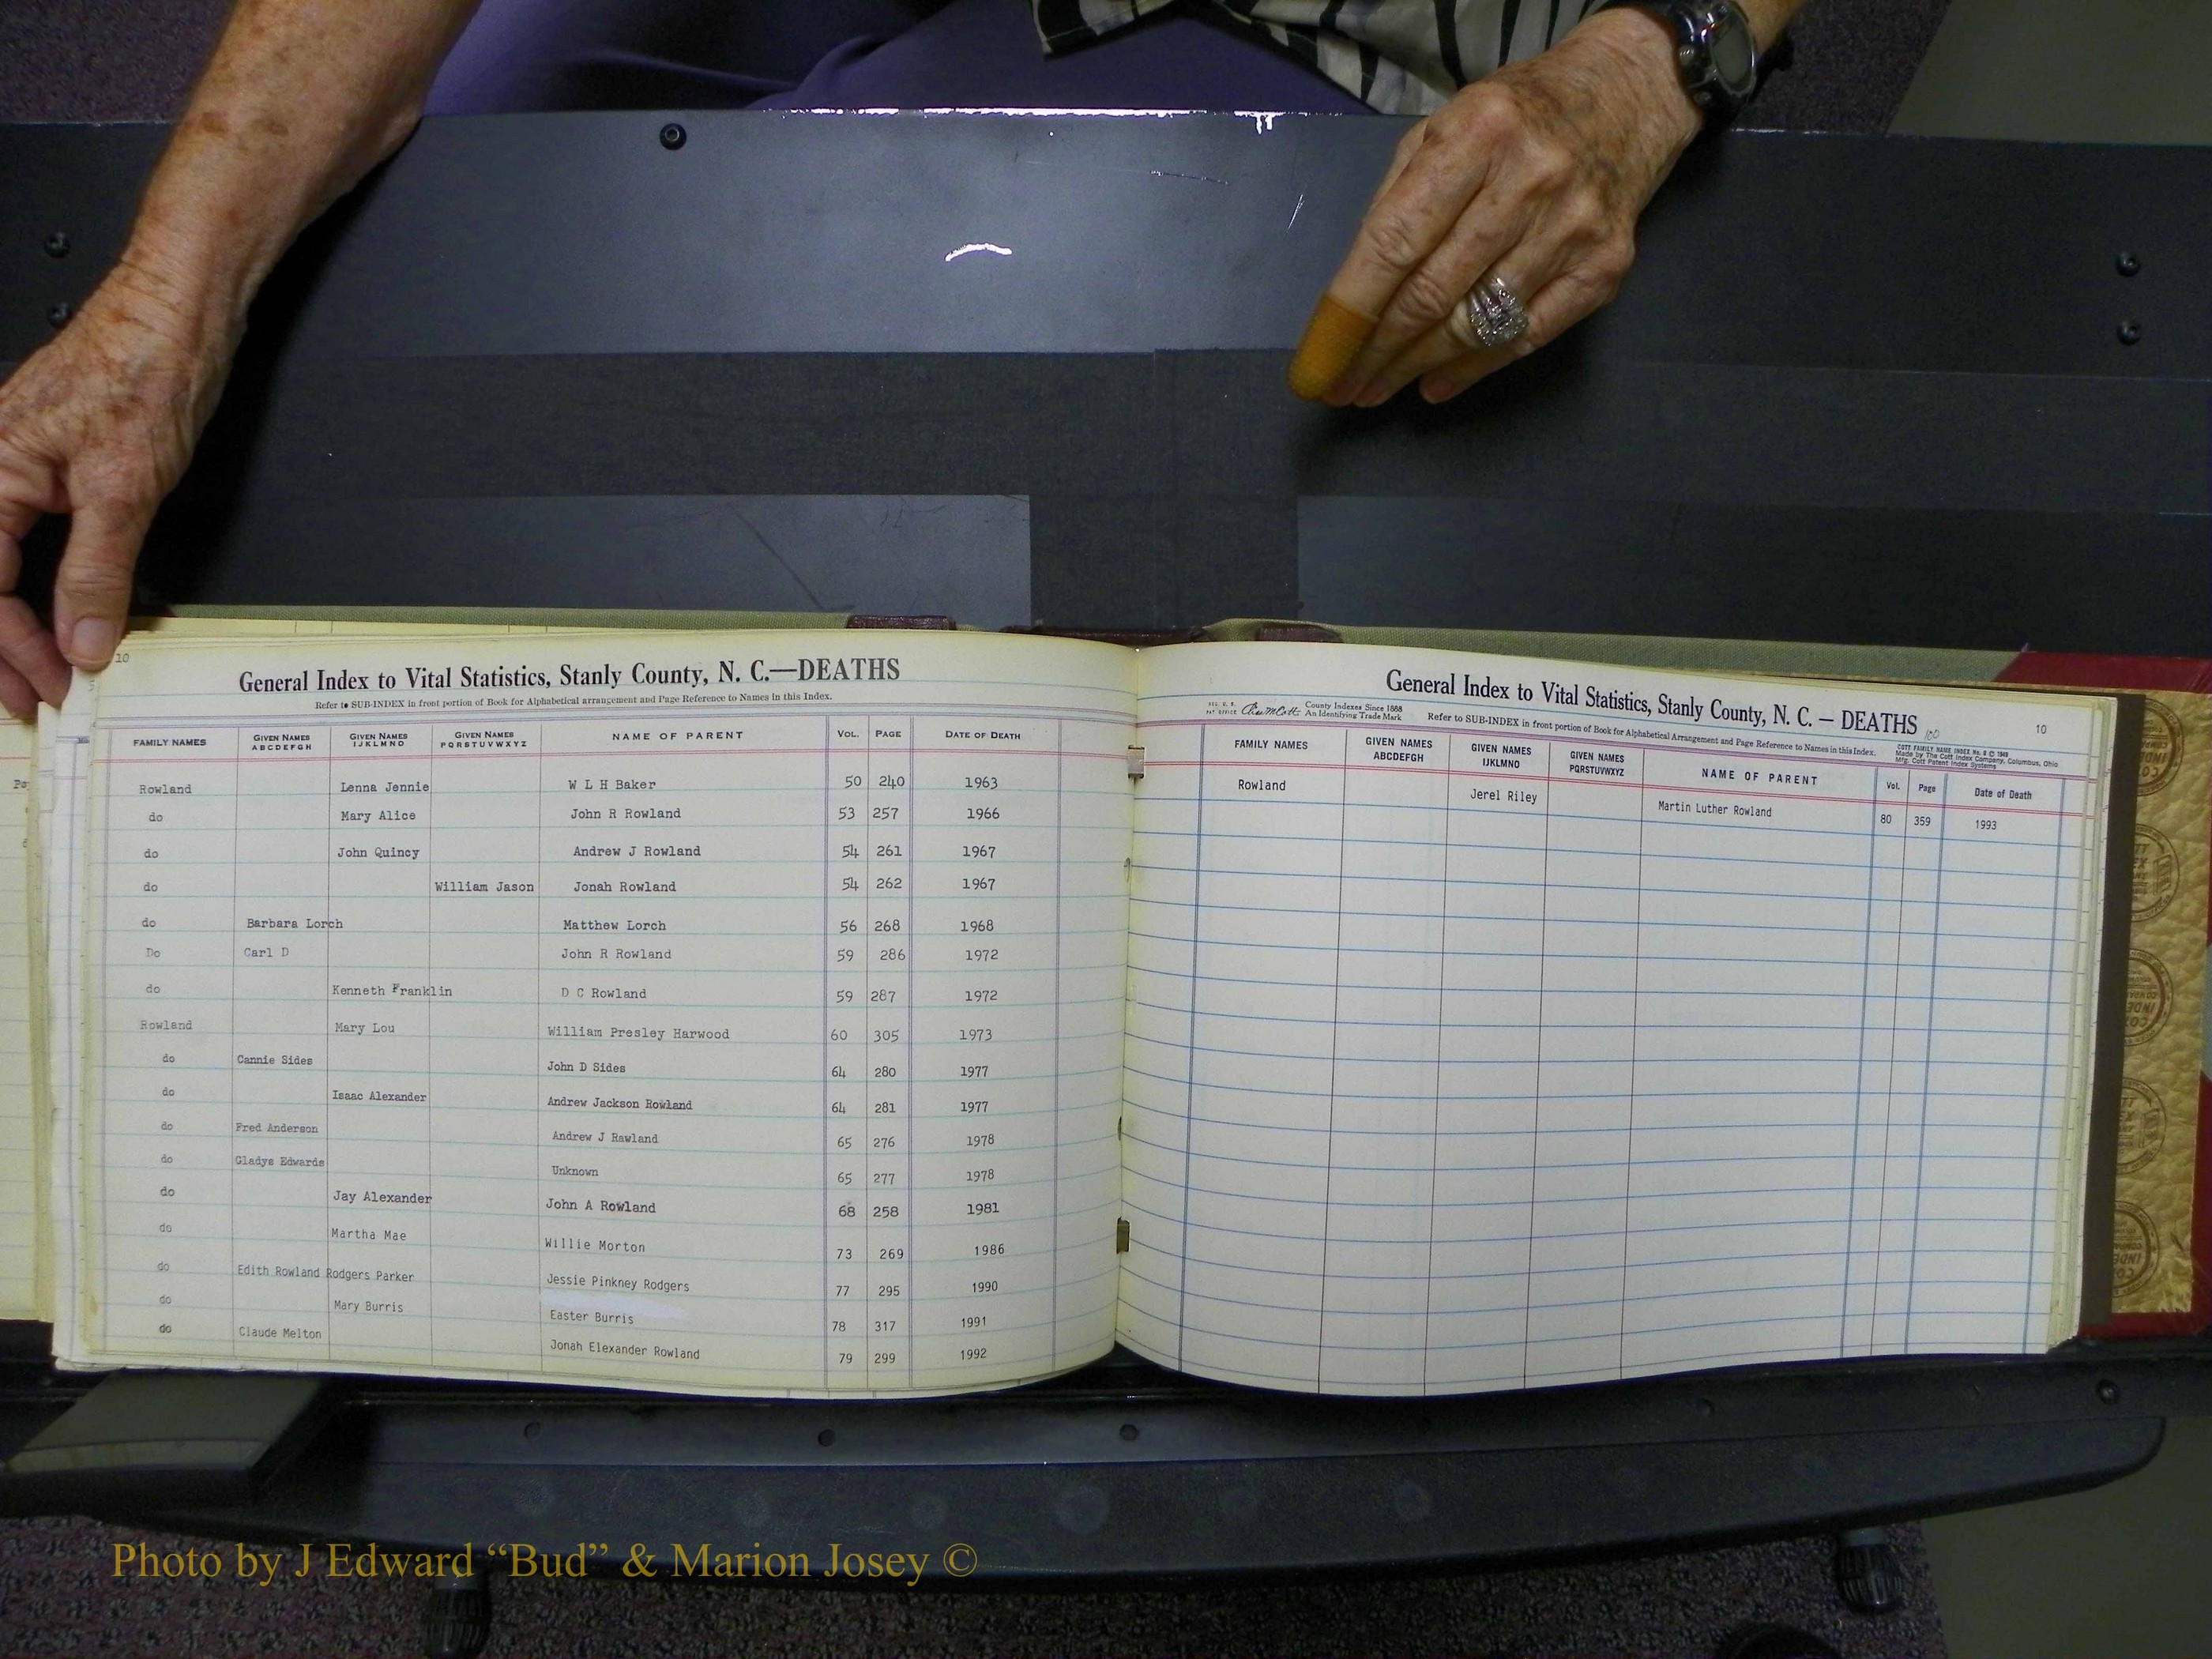 10
General Index to Vital Statistics, Stanly County, N. C.—DEATHS
Refer to SUB-INDEX in front portion of Book for Alphabetical arrangement and Page Reference to Names in this Index.
FAMILY NAMES GIVEN NAMES ABCDEFGH GIVEN NAMES IJKLMNO GIVEN NAMES PQRSTUVWXYZ NAME OF PARENT VOL. PAGE DATE OF DEATH
Rowland Lenna Jennie W L H Baker 50 240 1963
do Mary Alice John R Rowland 53 257 1966
do John Quincy Andrew J Rowland 54 261 1967
do William Jason Jonah Rowland 54 262 1967
do Barbara Lorch Matthew Lorch 56 268 1968
Do Carl D John R Rowland 59 286 1972
do Kenneth Franklin D C Rowland 59 287 1972
Rowland Mary Lou William Presley Harwood 60 305 1973
do Cannie Sides John D Sides 64 280 1977
do Isaac Alexander Andrew Jackson Rowland 64 281 1977
do Fred Anderson Andrew J Rawland 65 276 1978
do Gladys Edwards Unknown 65 277 1978
do Jay Alexander John A Rowland 68 258 1981
do Martha Mae Willie Morton 73 269 1986
do Edith Rowland Rodgers Parker Jessie Pinkney Rodgers 77 295 1990
do Mary Burris Easter Burris 78 317 1991
do Claude Melton Jonah Elexander Rowland 79 299 1992
General Index to Vital Statistics, Stanly County, N. C. — DEATHS
100
10
County Indexes Since 1888
An Identifying Trade Mark
Refer to SUB-INDEX in front portion of Book for Alphabetical Arrangement and Page Reference to Names in this Index.
COTT FAMILY NAME INDEX No. 8 © 1949
Made by The Cott Index Company, Columbus, Ohio
Mfg. Cott Patent Index Systems
FAMILY NAMES GIVEN NAMES ABCDEFGH GIVEN NAMES IJKLMNO GIVEN NAMES PQRSTUVWXYZ NAME OF PARENT Vol. Page Date of Death
Rowland Jerel Riley Martin Luther Rowland 80 359 1993
Photo by J Edward “Bud” & Marion Josey ©